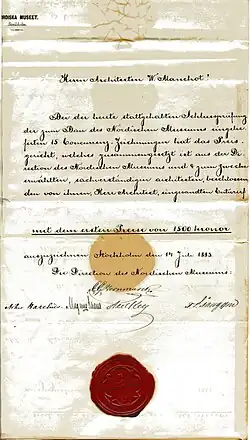 NDISKA MUSEET.
Stockholm
Herrn Architecten W. Manchot!
Bei der heute stattgehabten Schlussprüfung
der zum Bau des Nordischen Museums eingelie-
ferten 15 Concurrenz-Zeichnungen hat das Preis-
gericht, welches zusammengesetzt ist aus der Di-
rection des Nordischen Museums und 4 zum Zwecke
erwählten, sachverständigen Architecten, beschlossen
den von ihnen, Herr Architect, eingesandten Entwurf
mit dem ersten Preise von 1500 kronor
auszuzeichnen Stockholm den 14 Juli 1883
Die Direction des Nordischen Museums: